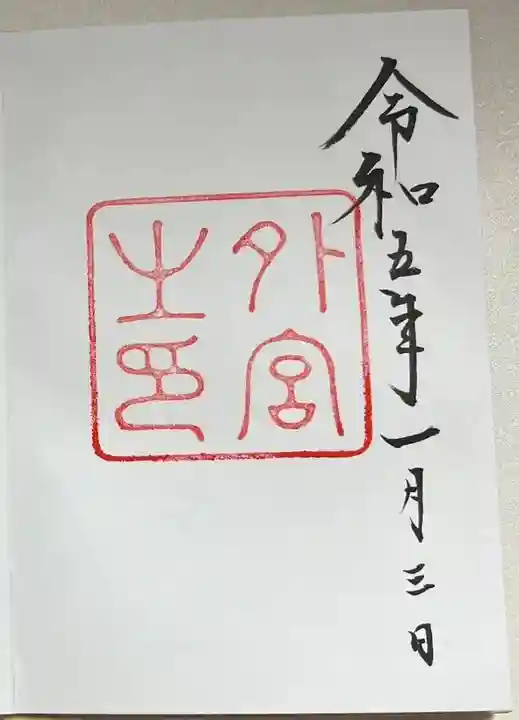 令和五年一月三日
外宮
之印